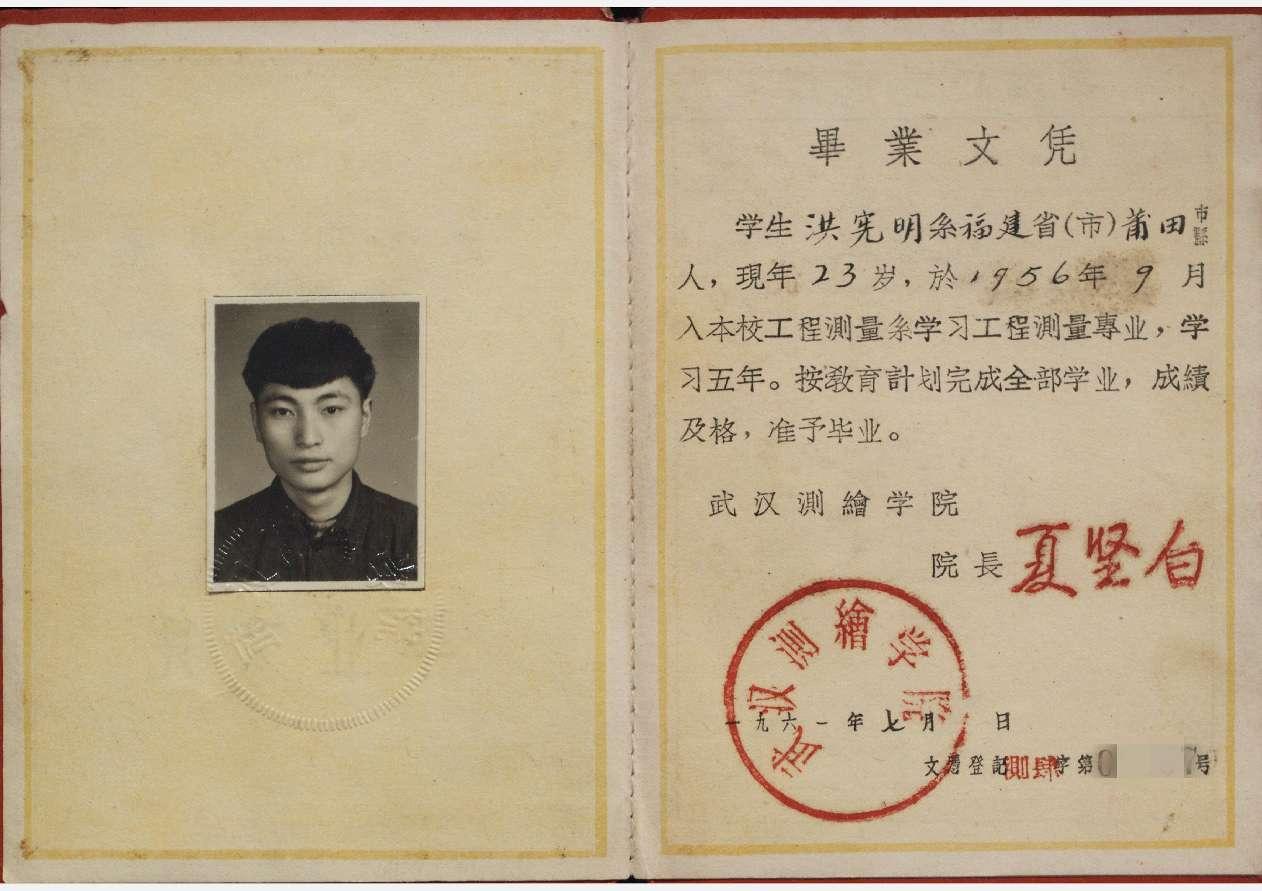 畢業文凭
学生洪宪明系福建省(市)莆田市縣
人，現年23岁，於1956年9月
入本校工程測量系学习工程測量專业，学
习五年。按敎育計划完成全部学业，成績
及格，准予毕业。
武汉測繪学院
院長夏坚白
武汉測繪学院
一九六一年七月 日
文凭登記測肆字第0 7号